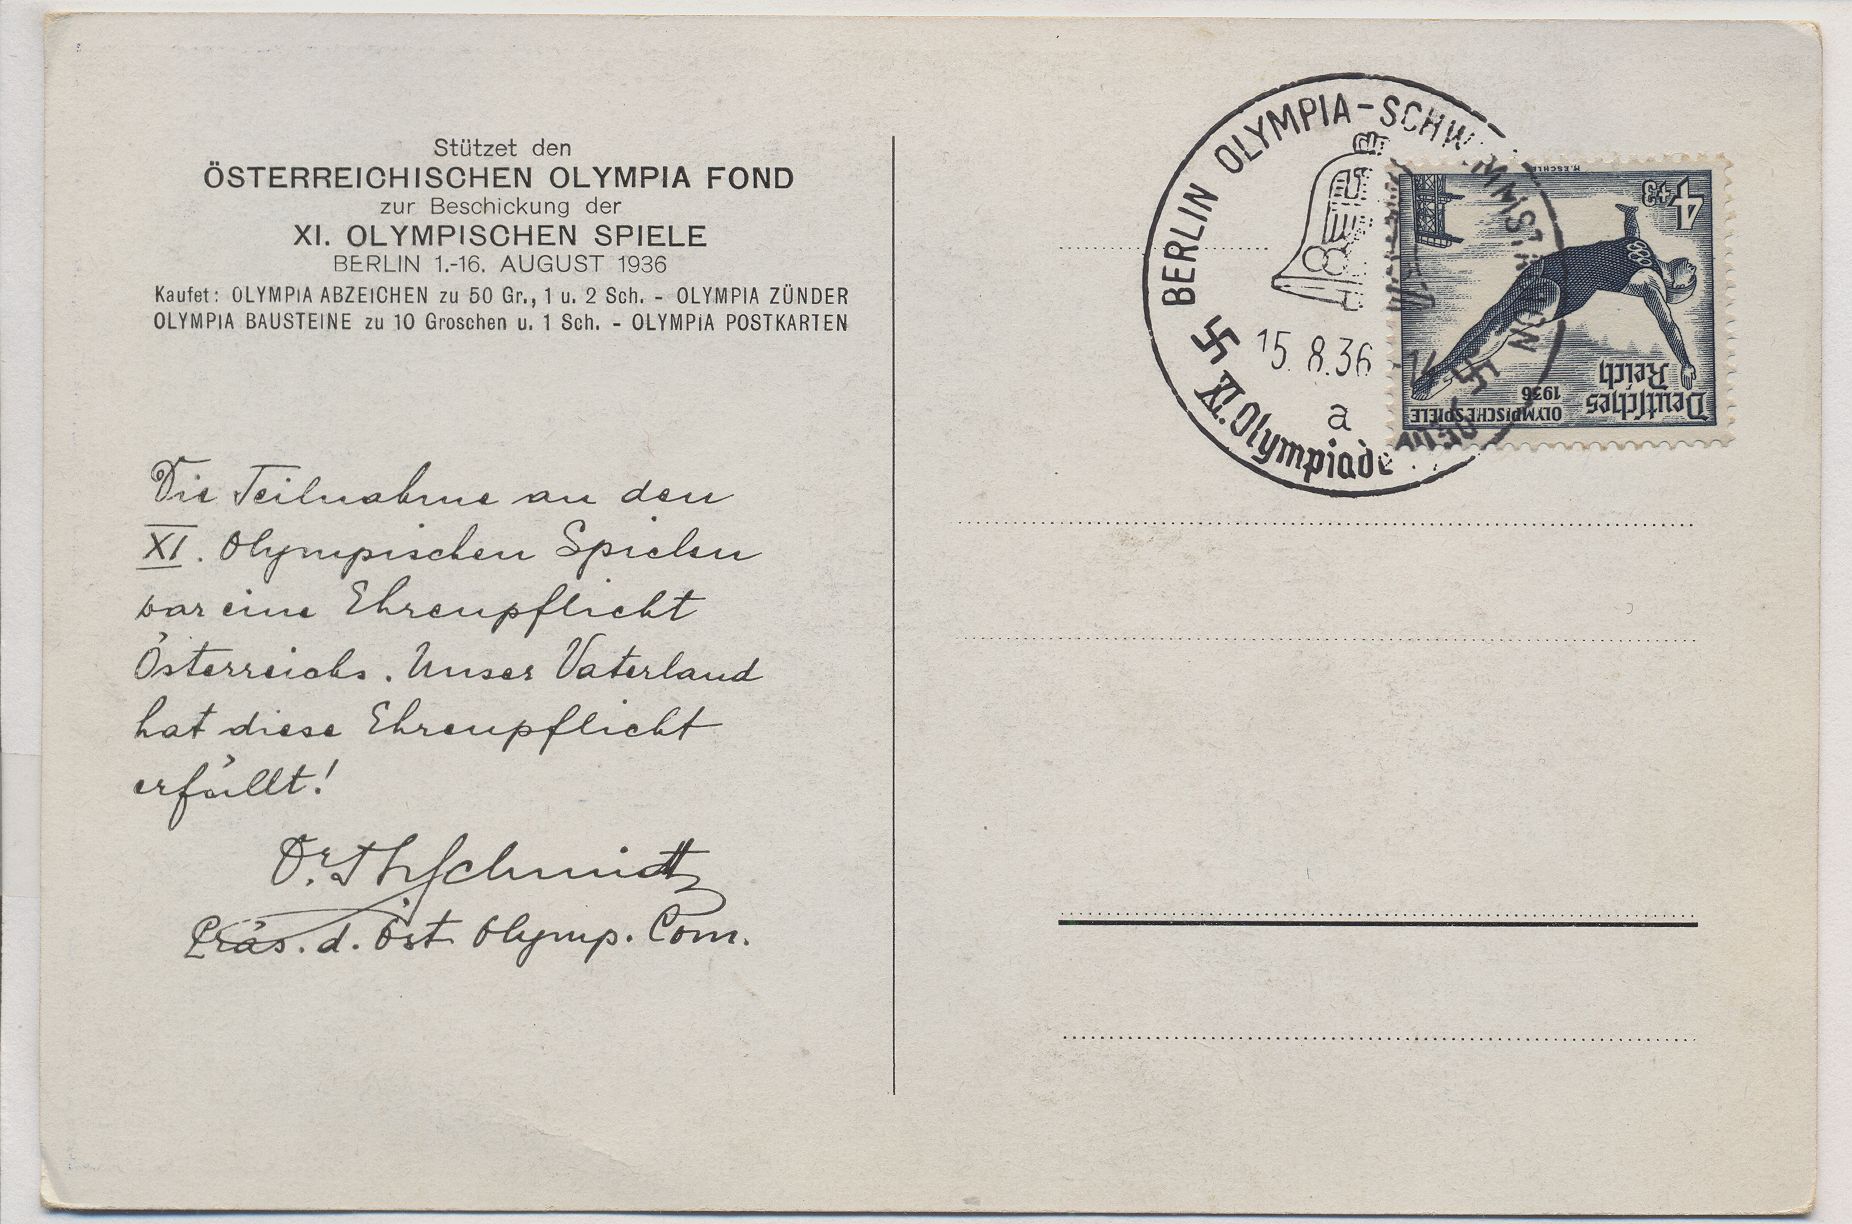 Stützet den
ÖSTERREICHISCHEN OLYMPIA FOND
zur Beschickung der
XI. OLYMPISCHEN SPIELE
BERLIN 1.-16. AUGUST 1936
Kaufet: OLYMPIA ABZEICHEN zu 50 Gr., 1 u. 2 Sch. - OLYMPIA ZÜNDER
OLYMPIA BAUSTEINE zu 10 Groschen u. 1 Sch. - OLYMPIA POSTKARTEN
Die Teilnahme an den
XI. Olympischen Spielen
war eine Ehrenpflicht
Österreichs. Unser Vaterland
hat diese Ehrenpflicht
erfüllt!
Dr. Th Schmidt
Präs. d. Öst. Olymp. Com.
BERLIN OLYMPIA-SCHWIMMSTADION
15.8.36
a
XI. Olympiade
4+3
Deutsches
Reich
1936
OLYMPISCHE SPIELE